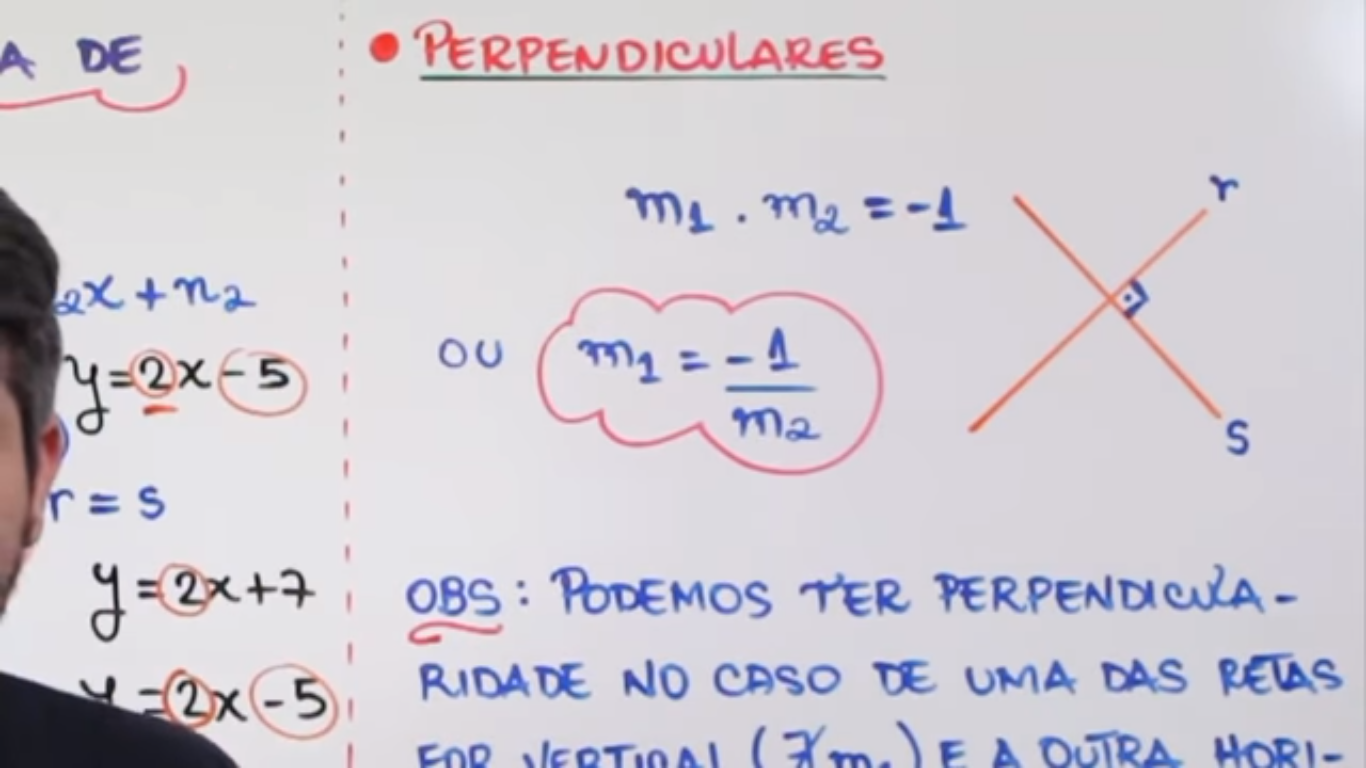 A DE
2x + n2
y = 2x - 5
r = s
y = 2x + 7
y = 2x - 5
• PERPENDICULARES
m1 . m2 = -1
r
s
OU m1 = -1/m2
OBS: PODEMOS TER PERPENDICULA-
RIDADE NO CASO DE UMA DAS RETAS
FOR VERTICAL (∄m1) E A OUTRA HORI-